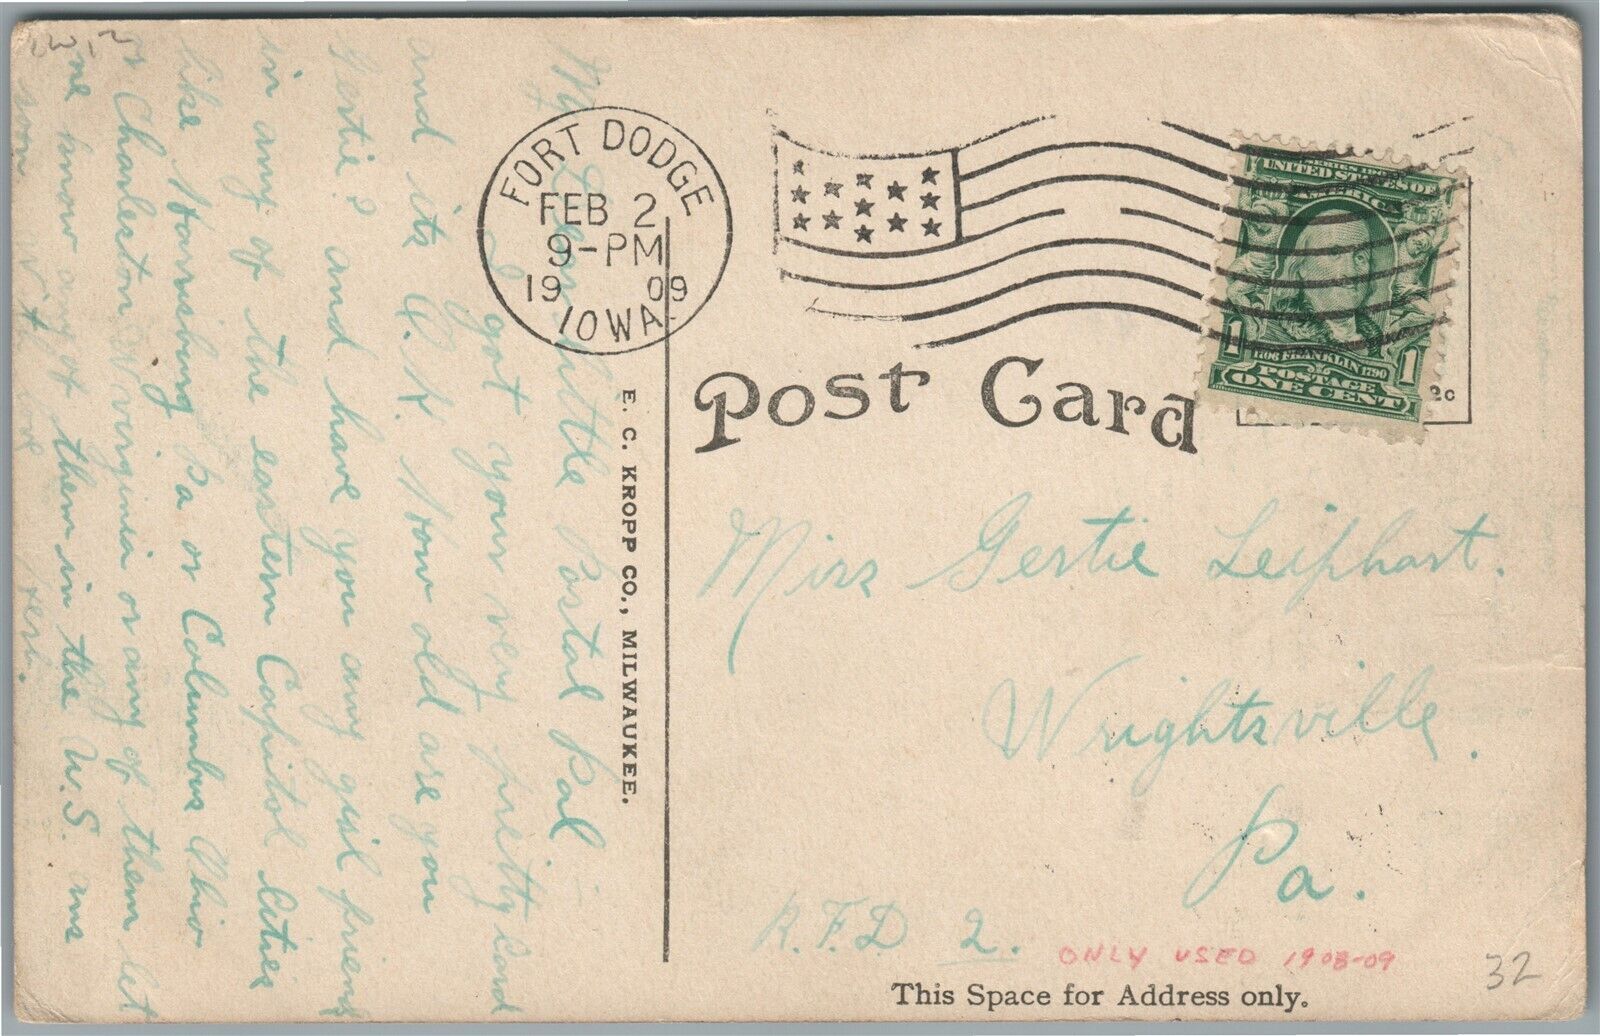 My Dear Little Postal Pal =
I got your very pretty Card
and its A. N. How old are you
Gertie? and have you any girl friends
in any of the eastern Capitol Cities
like Harrisburg Pa or Columbus Ohio
Charleston W. Virginia or any of them let
me know any of them in the U.S. ans
soon
FORT DODGE
FEB 2
9-PM
19 09
IOWA.
UNITED STATES OF
1 1706 FRANKLIN 1790 1
POSTAGE
ONE CENT
2c
Post Card
E. C. KROPP CO., MILWAUKEE.
Miss Gertie Leiphart.
Wrightsville.
Pa.
R.F.D 2.
ONLY USED 1908-09
32
This Space for Address only.